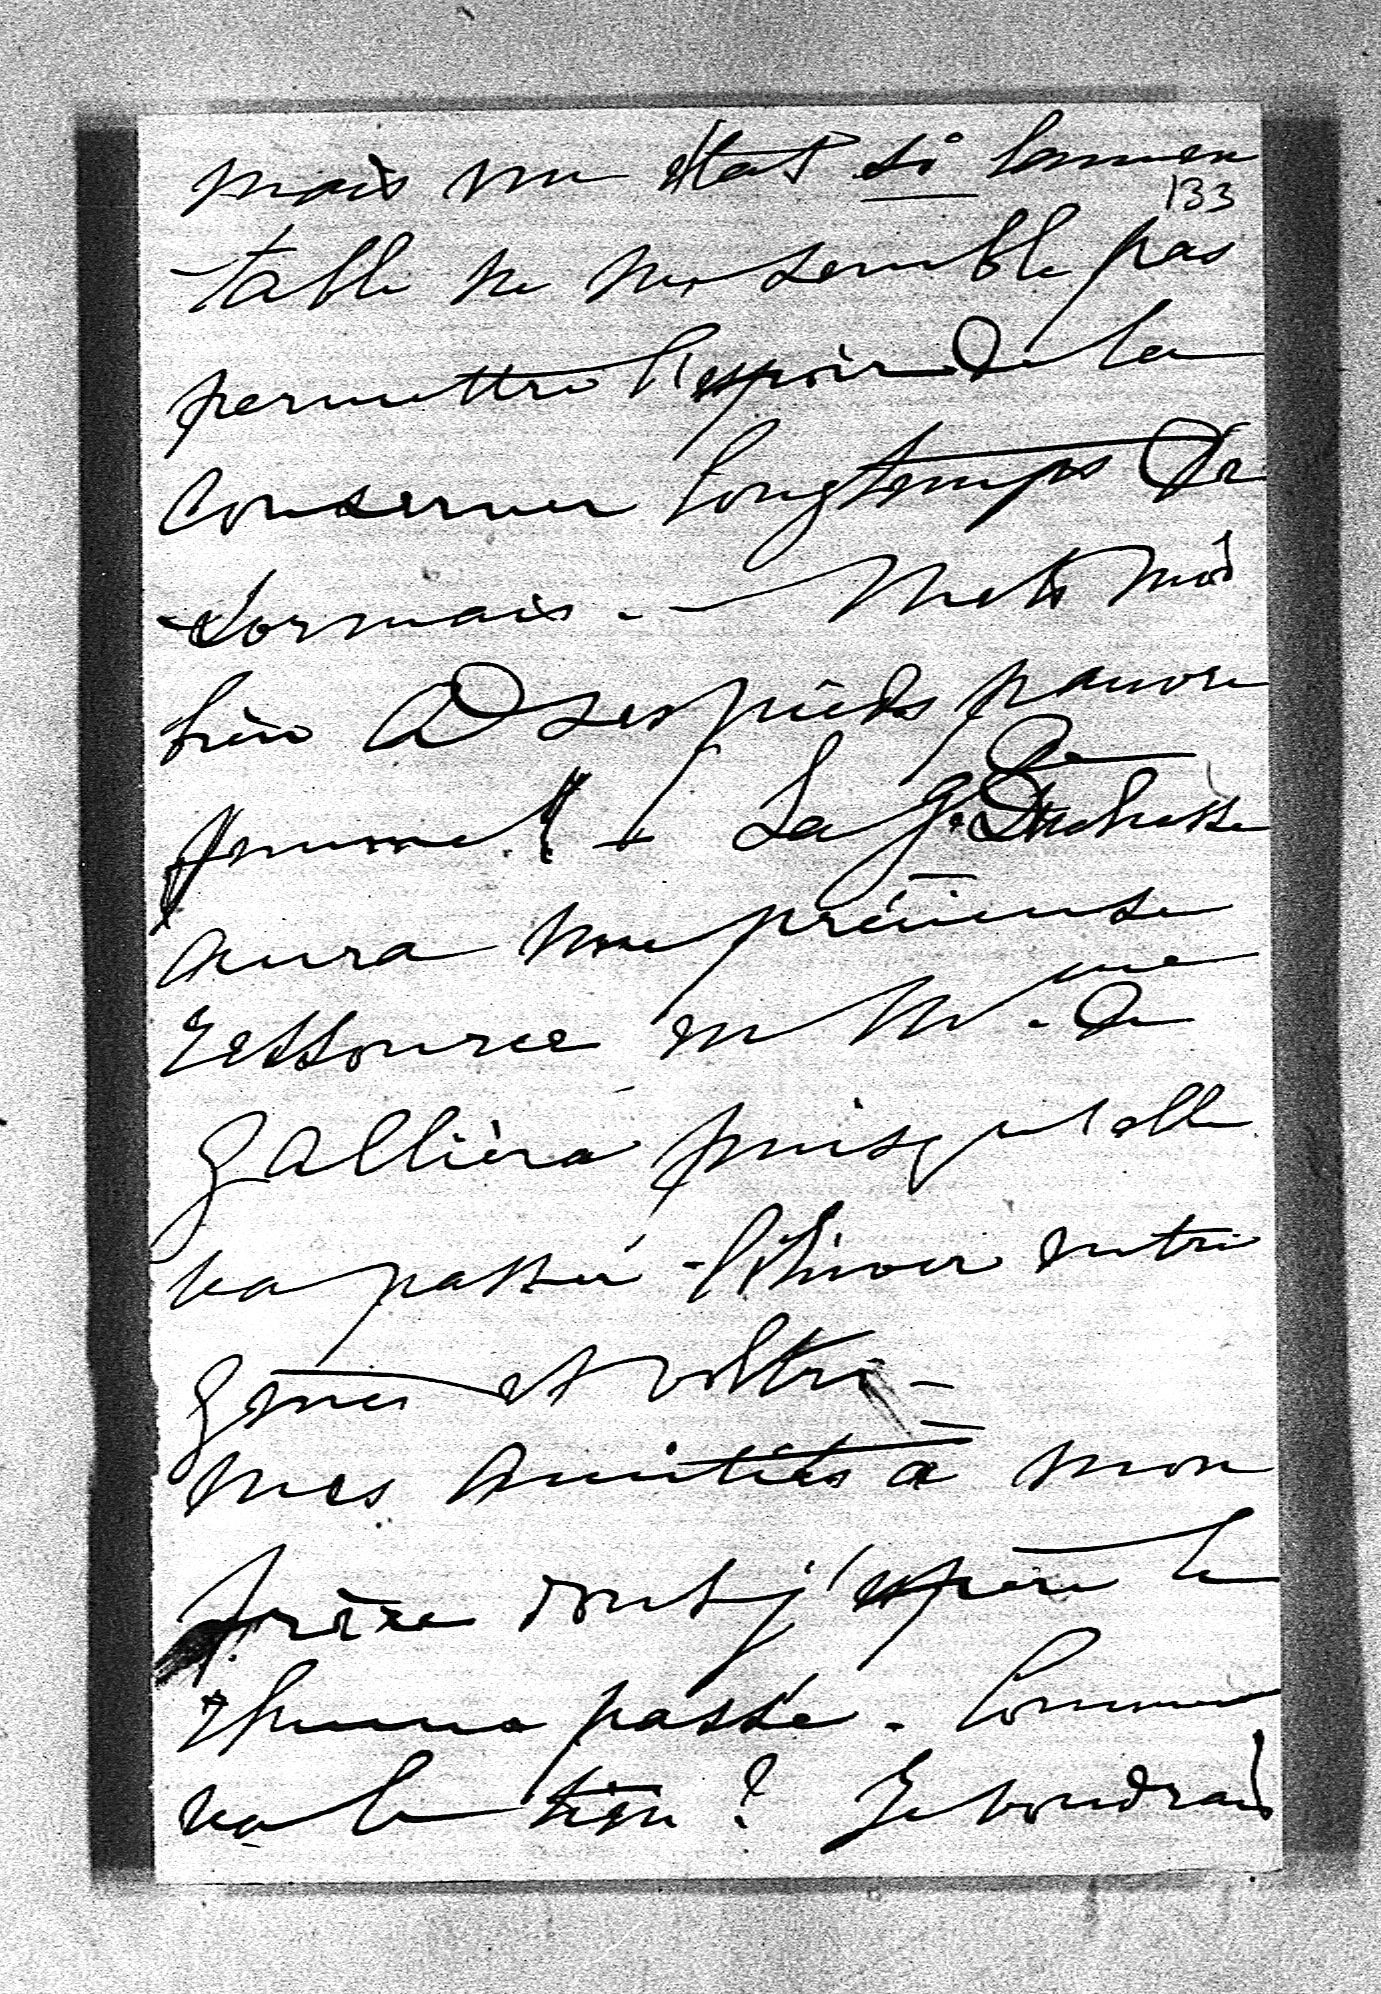 mais un état si lamen
133
table ne me semble pas
permettre l'espoir de la
conserver longtemps dé
sormais. — Mets moi
bien à ses pieds pauvre
femme! — La gde Duchesse
aura une précieuse
ressource en Mme de
Galliera puisqu'elle
va passer l'hiver entre
Gênes et Voltri —
mes amitiés à mon
frère dont j'espère le
rhume passé. Comment
va le tien? Je voudrais